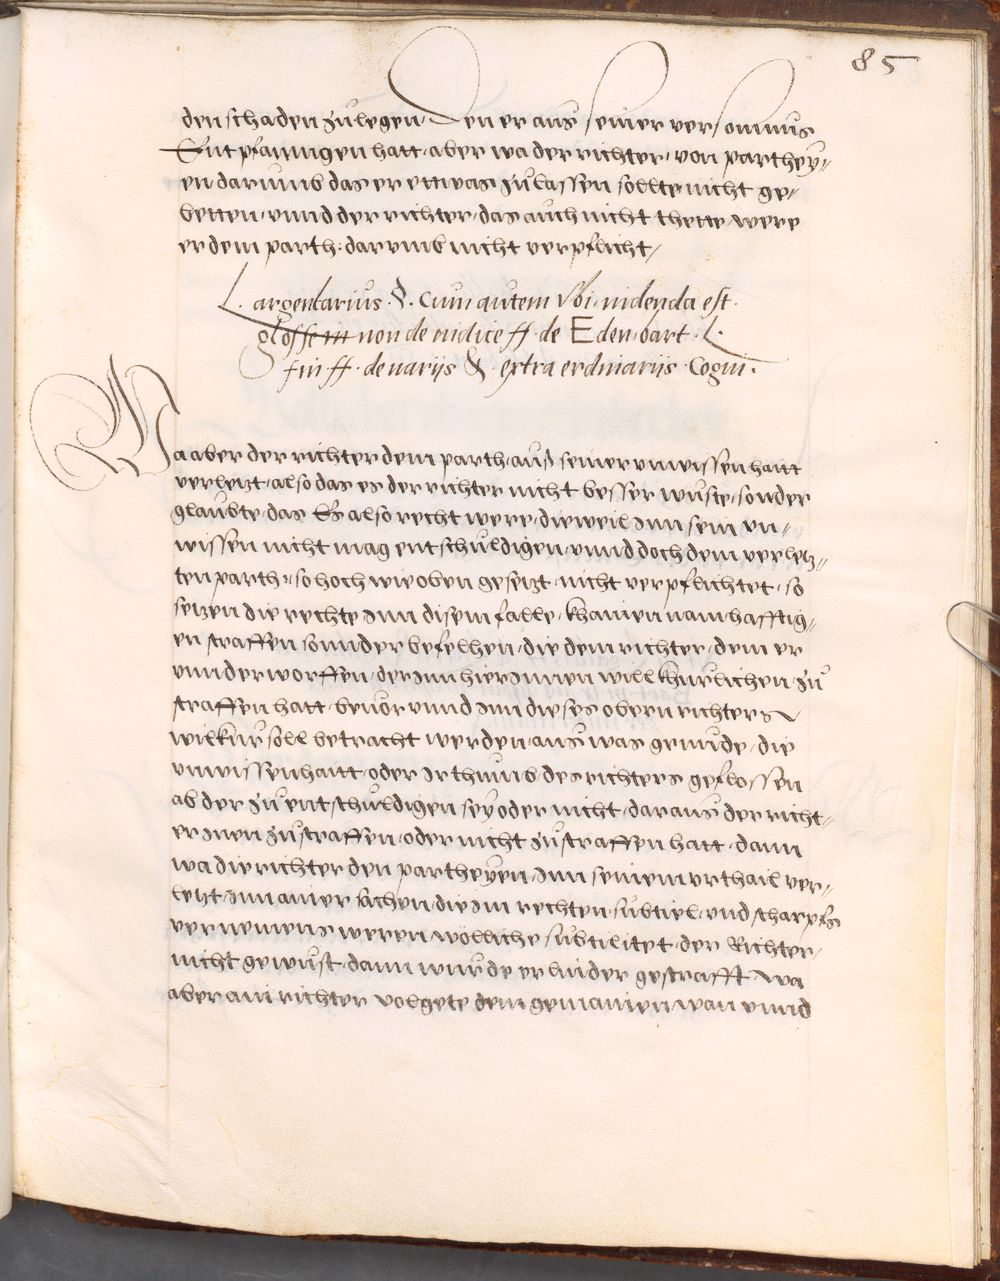 85
den schaden zulegen, Den er aus seiner versomnus
Entpfanngen hatt, aber wa der richter, von parthey=
en darumb das er ettwas zulassen sollte nicht ge=
betten, vnnd der richter, das auch nicht thette, were
er dem parth: darumb nicht verpflicht,
L. argentarius. §. Cum autem vbi videnda est.
glosse in non de iudice ff. de Eden. bart. L.
fin ff. de varijs & extra ordinarijs Cogni.
Wa aber der richter dem parth, aus seiner vnwissenhaitt
verletzt, also das es der richter nicht besser wuste, sonder
glaubte, das Es also recht were, dieweil Inn sein vn,,
wissen nicht mag entschuldigen, vnnd doch dem verletz,,
ten parth, so hoch wie oben gesetzt, nicht verpflichtet, so
setzen die rechte Inn disem falle, khainen namhafftig,,
en straffen sonnder befelhen, die dem richter, dem er
vnnderworffen, der Inn hierInnen willkhurlichen, zu
straffen hatt, beuor vnnd Inn dieses obern richters
wilkur soll betracht werden, aus was grunde, die
vnwissenhaitt, oder Irthumb des richters geflossen
ab der zu entschuldigen sey oder nicht, daraus der richt=
er Inen zustraffen, oder nicht zustraffen hatt, dann
wa die richter den partheyen, Inn seinem vrthail ver,,
letzt, Inn ainer sachen, die Im rechten, subtiel, vnd scharpffs
vernemens weren, wölliche subtilitet, der Richter,
nicht gewust, dann wurde er linder gestrafft, wa
aber ain richter volgete dem gemainen wan vnnd